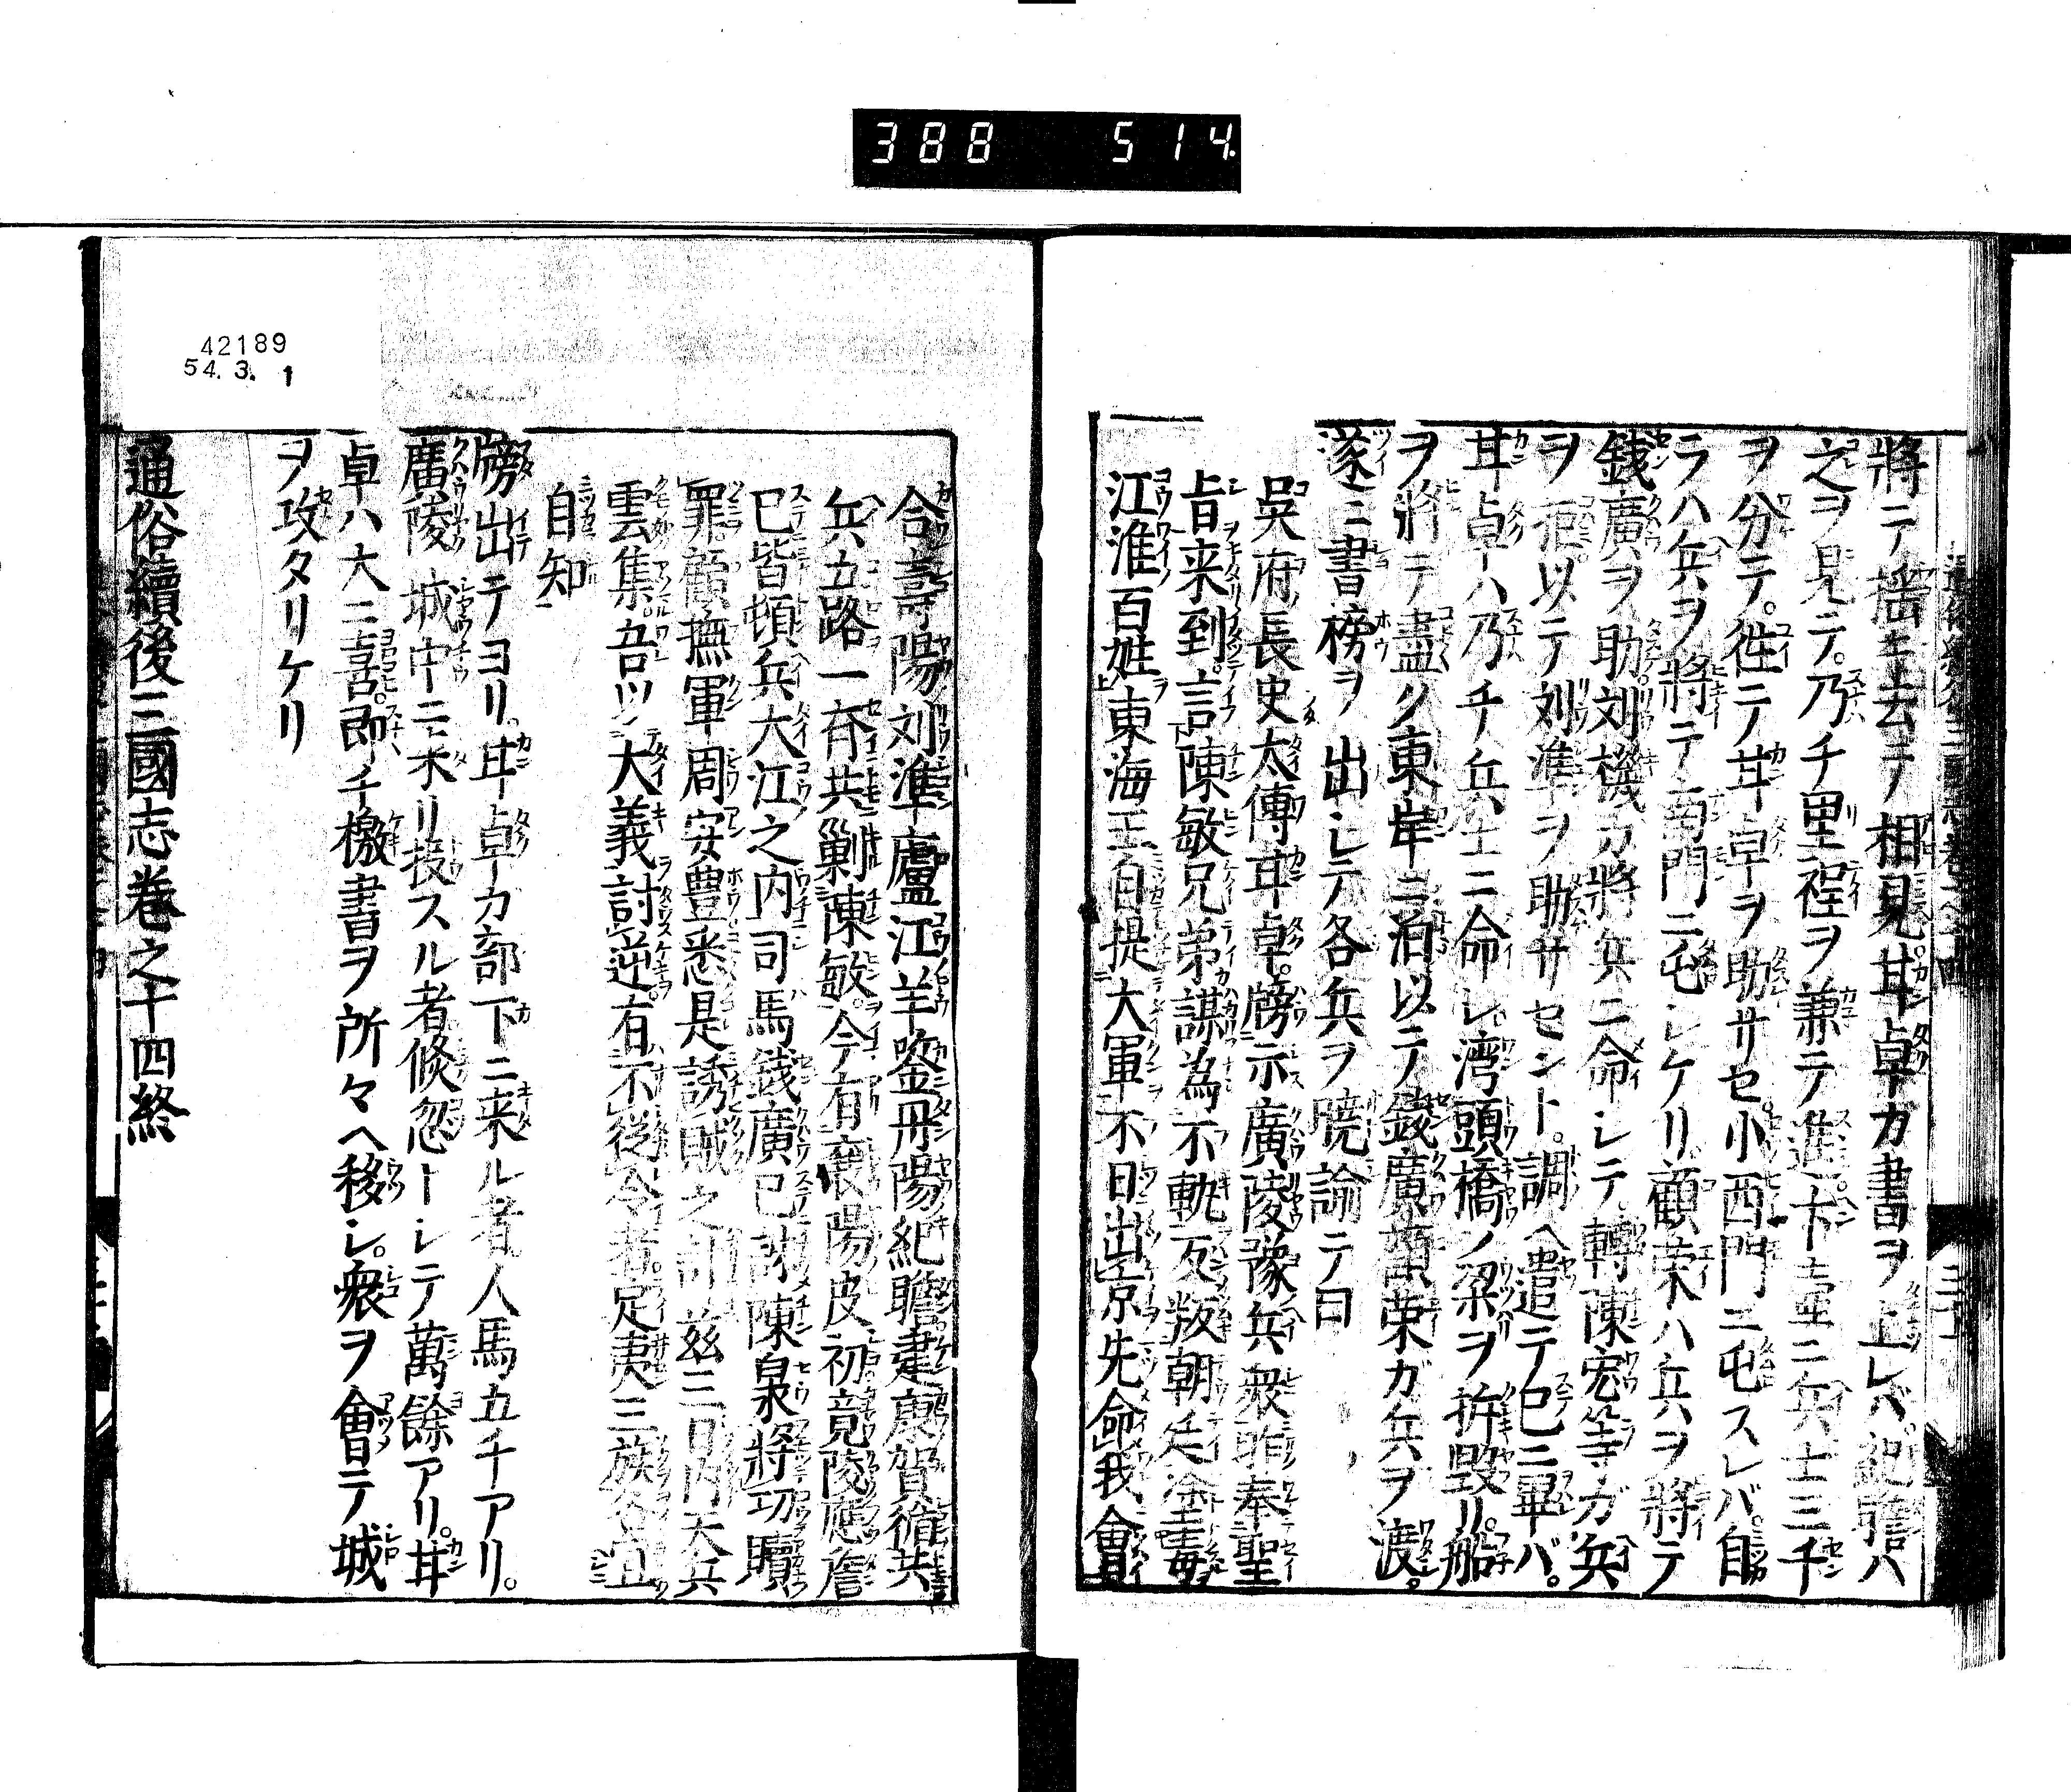 388 514
將ニテ揺モ去テ相見。甘卓ガ書ヲ上レバ。紀瞻ハ
之ヲ見テ。乃チ里程ヲ兼テ進ミ下壷ニ兵士三千
ヲ分テ。徃テ甘卓ヲ助サセ小西門ニ屯スレバ。自
ラハ兵ヲ將テ南門ニ屯シケリ顧荣ハ兵ヲ將テ
錢廣ヲ助刘機カ將兵ニ命シテ。轉陳宏等ガ兵
ヲ拒。以テ刘準ヲ助サセント。調ヘ遣テ已ニ畢バ。
甘卓ハ乃チ兵士ニ命シ湾頭橋ノ梁ヲ拆毀リ。船
ヲ將テ盡ク東岸ニ泊以テ錢廣顧荣ガ兵ヲ渡。
遂ニ書榜ヲ出シテ各兵ヲ暁諭テ曰
呉府長史太傅甘卓。牓示廣陵豫兵衆昨奉聖
旨来到。言陳敏兄弟謀為不軌反叛朝廷塗毒
江淮百姓東海王自提大軍不日出京先命我會
合壽陽刘準廬江羊鍳丹陽紀瞻建康賀循共
兵五路一斉共剿陳敏。今有襄陽皮初竟陵應詹
已皆頓兵大江之内司馬錢廣已誅陳泉將功贖
罪。顧撫軍周安豊悉是誘賊之計茲三日内天兵
雲集。吾ツ大義討逆。有不從令者。定夷三族各宜
自知
牓出テヨリ。甘卓ガ部下ニ来ル者人馬五千アリ。
廣陵城中ニ来リ投スル者倏忽トシテ萬餘アリ。甘
卓ハ大ニ喜。即チ檄書ヲ所々ヘ移シ。衆ヲ會テ城
ヲ攻タリケリ
通俗續後三國志巻之十四終
42189
54.3.1